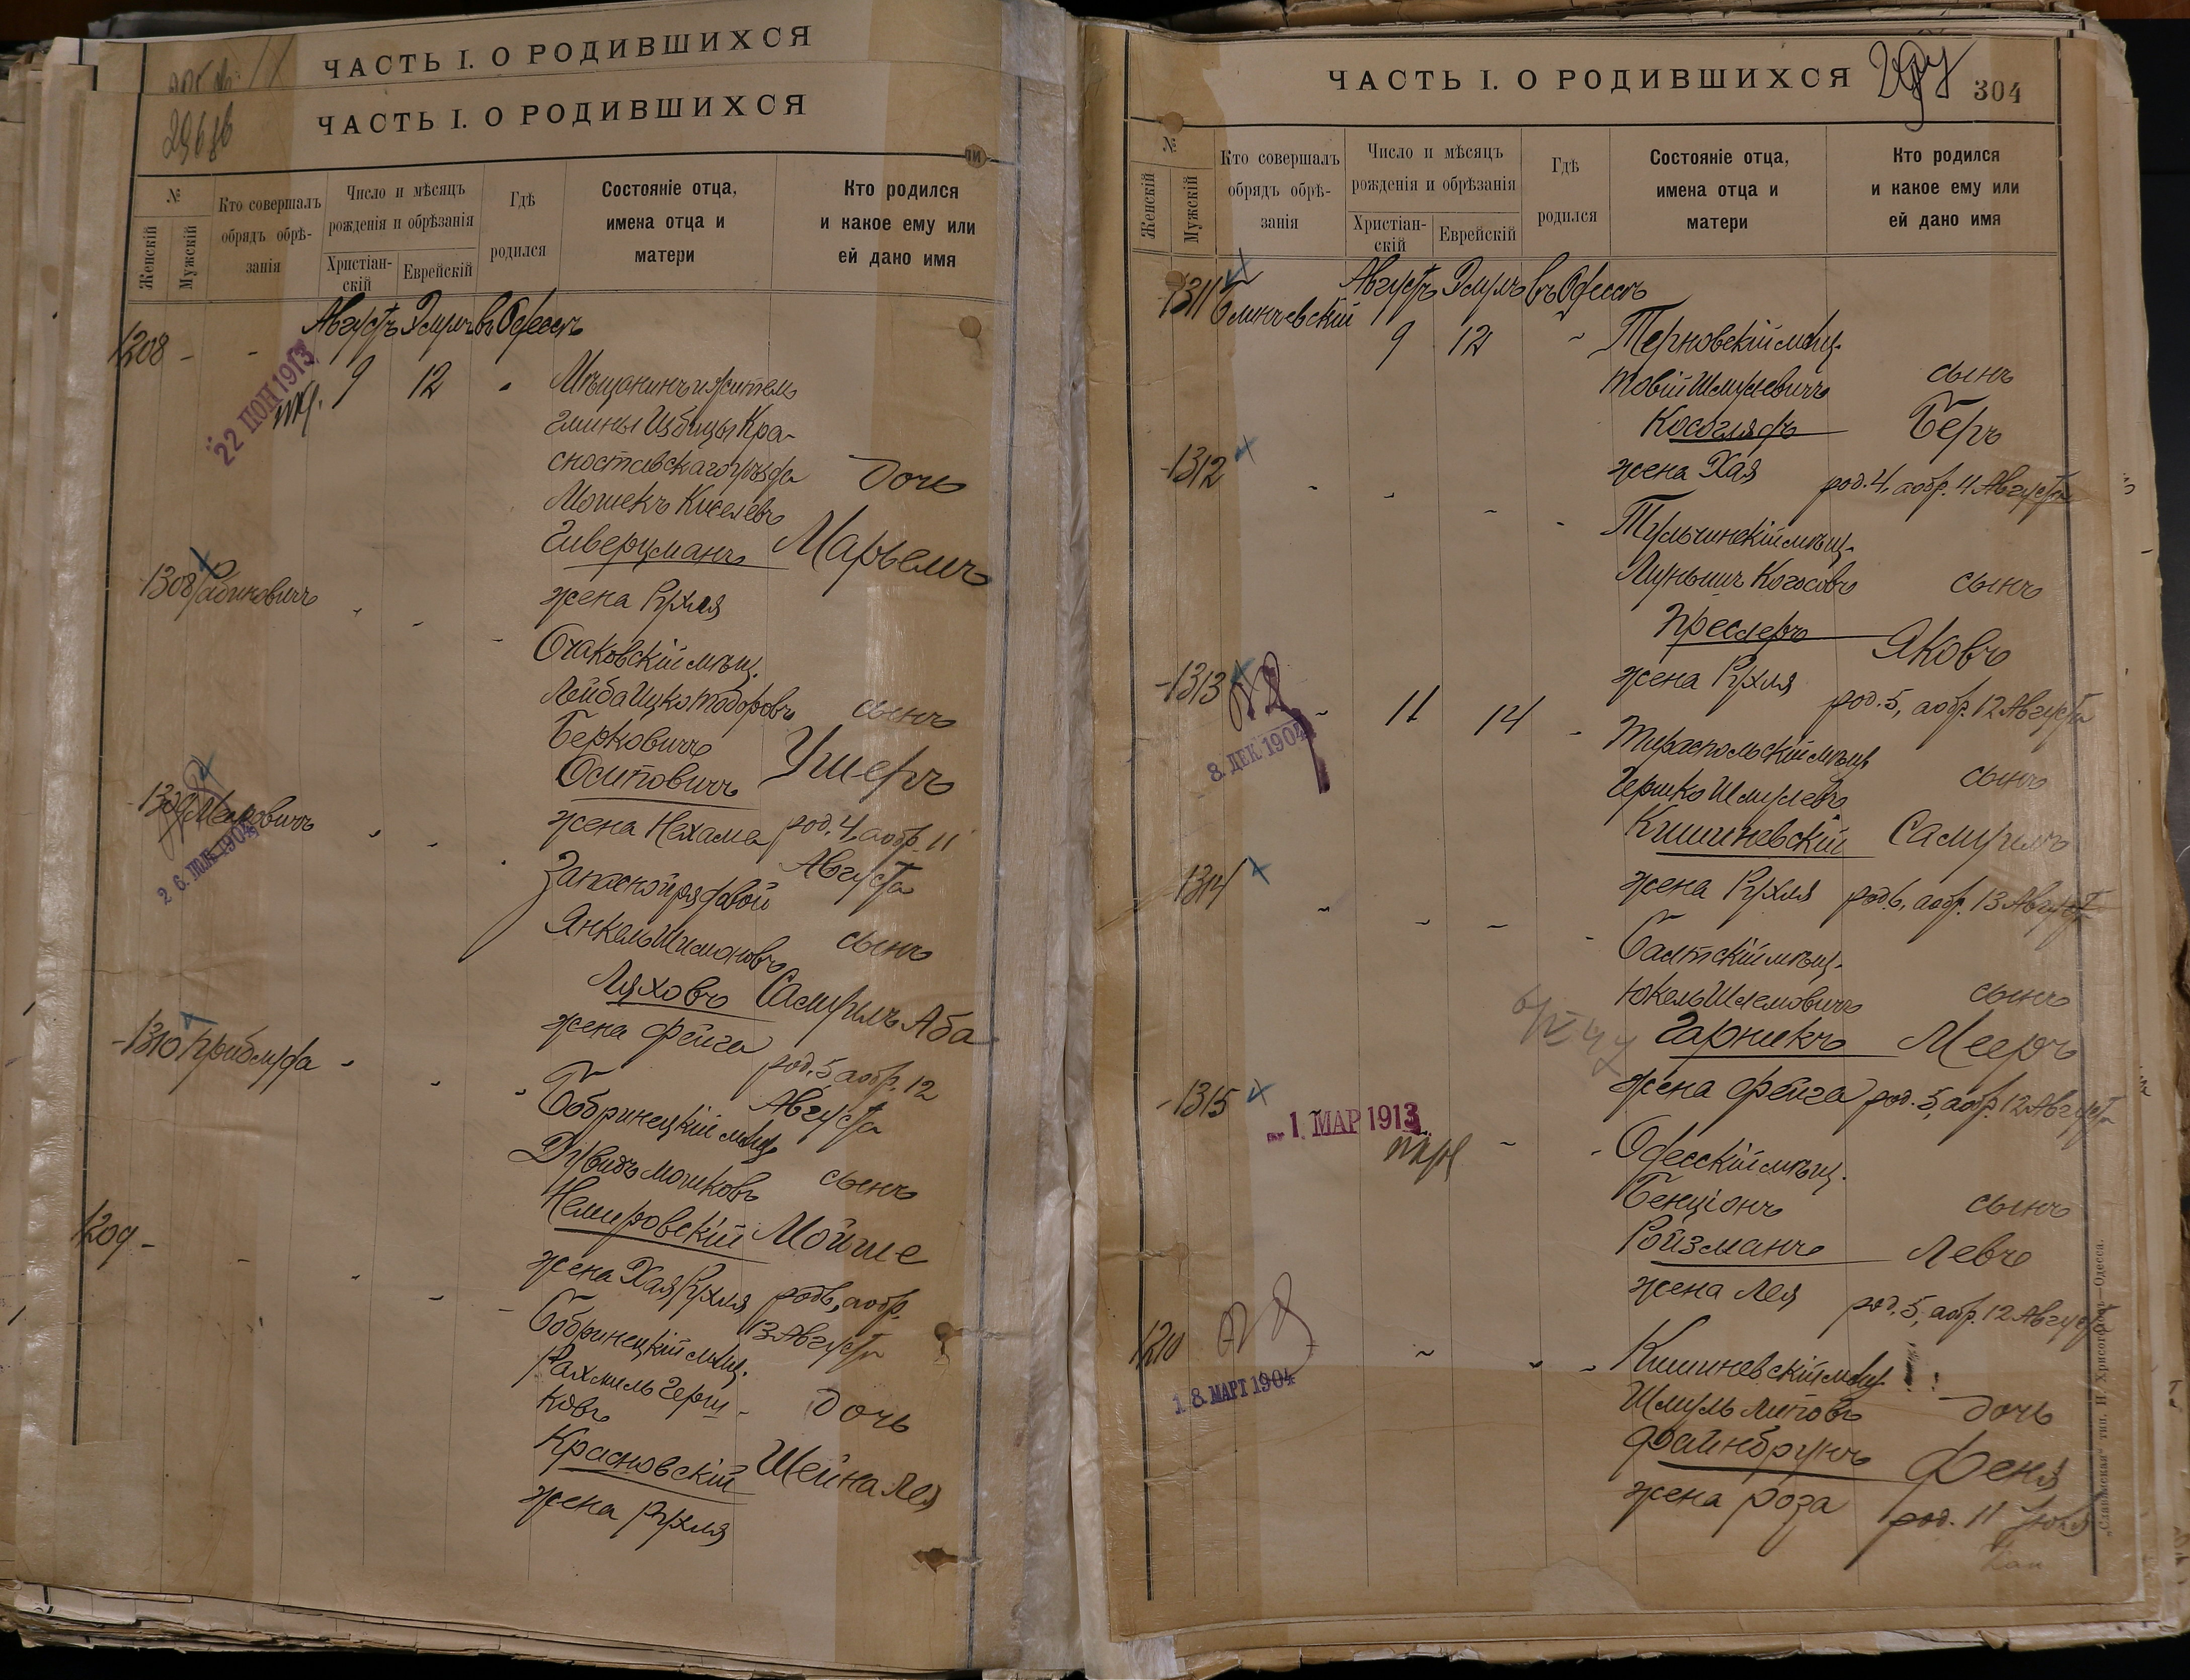 ЧАСТЬ I. О РОДИВШИХСЯ
ЧАСТЬ I. О РОДИВШИХСЯ
№
Женскій
Мужскій
Кто совершалъ
обрядъ обрѣ-
занія
Число и мѣсяцъ
рожденія и обрѣзанія
Христіан-
скій
Еврейскій
Гдѣ
родился
Состояніе отца,
имена отца и
матери
Кто родился
и какое ему или
ей дано имя
Августъ Элулъ въ Одессѣ
1208 - -
9 12
22 ІЮН 1913
Мѣщанинъ и житель
гмины Избицы Кра-
сноставскаго уѣзда
дочь
Мошекъ Киселевъ
Гиверцманъ Марьемъ
жена Рухля
1308 Рабиновичъ
Очаковскій мѣщ.
Лейба Ицко Тодоровъ сынъ
Берковичъ
Осиповичъ Ушеръ
жена Нехама род. 4, аобр. 11
Августа
1309 Меировичъ
Запасной рядовой
Янкель Шимоновъ сынъ
Ляховъ Самуилъ Аба
жена Фейга
род. 5 аобр. 12
Августа
1310 Прибмуда
Бобринецкій мѣщ.
Дувидъ Мошковъ сынъ
Немировскій Мойше
жена Хая Рухля род. 6, аобр.
13 Августа
1209 -
Бобринецкій мѣщ.
Рахмиль Герш-
ковъ дочь
Красновскій Шейна Лея
жена Рухля
ЧАСТЬ I. О РОДИВШИХСЯ
304
№
Женскій
Мужскій
Кто совершалъ
обрядъ обрѣ-
занія
Число и мѣсяцъ
рожденія и обрѣзанія
Христіан-
скій
Еврейскій
Гдѣ
родился
Состояніе отца,
имена отца и
матери
Кто родился
и какое ему или
ей дано имя
Августъ Элулъ въ Одессѣ
1311
9 12
Терновскій мѣщ.
Товій Шмулевичъ сынъ
Косоглядъ Беръ
жена Хая род. 4, аобр. 11 Августа
1312
Тульчинскій мѣщ.
сынъ
Креслеръ Яковъ
жена Рухля род. 5, аобр. 12 Августа
1313
11 14
8. ДЕК 1904
Тираспольскій мѣщ.
Гершко Шмулевъ сынъ
Кишиневскій Самуилъ
жена Рухля род. 6, аобр. 13 Августа
1314
Балтскій мѣщ.
Юкель Шлемовичъ сынъ
Гарникъ Мееръ
жена Фейга род. 5, аобр. 12 Августа
1315
1. МАР 1913
Одесскій мѣщ.
Бенціонъ сынъ
Ройзманъ Левъ
жена Лея род. 5, аобр. 12 Августа
1210
18. МАРТ 1904
Кишиневскій мѣщ.
Шмуль Липовъ дочь
Файнбрунъ Феня
жена Роза
род. 11 Іюля
„Славянская“ тип. Н. Хрисогелосъ—Одесса.